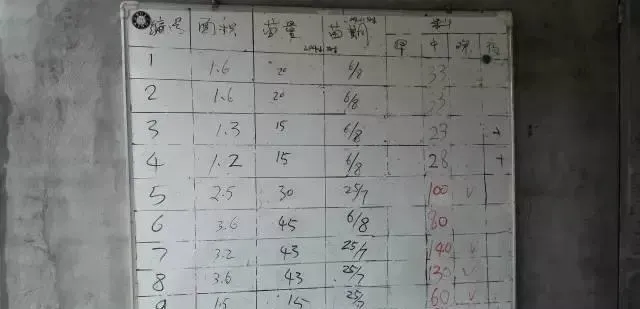 编号 面积 苗量 苗期 料
早 中 晚
1 1.6 20 6/8 33
2 1.6 20 6/8 33
3 1.3 15 6/8 23 +
4 1.2 15 6/8 28 +
5 2.5 30 25/7 100 √
6 3.6 45 6/8 80
7 3.2 43 25/7 140 √
8 3.6 43 25/7 130 √
9 1.5 15 25/7 60 √